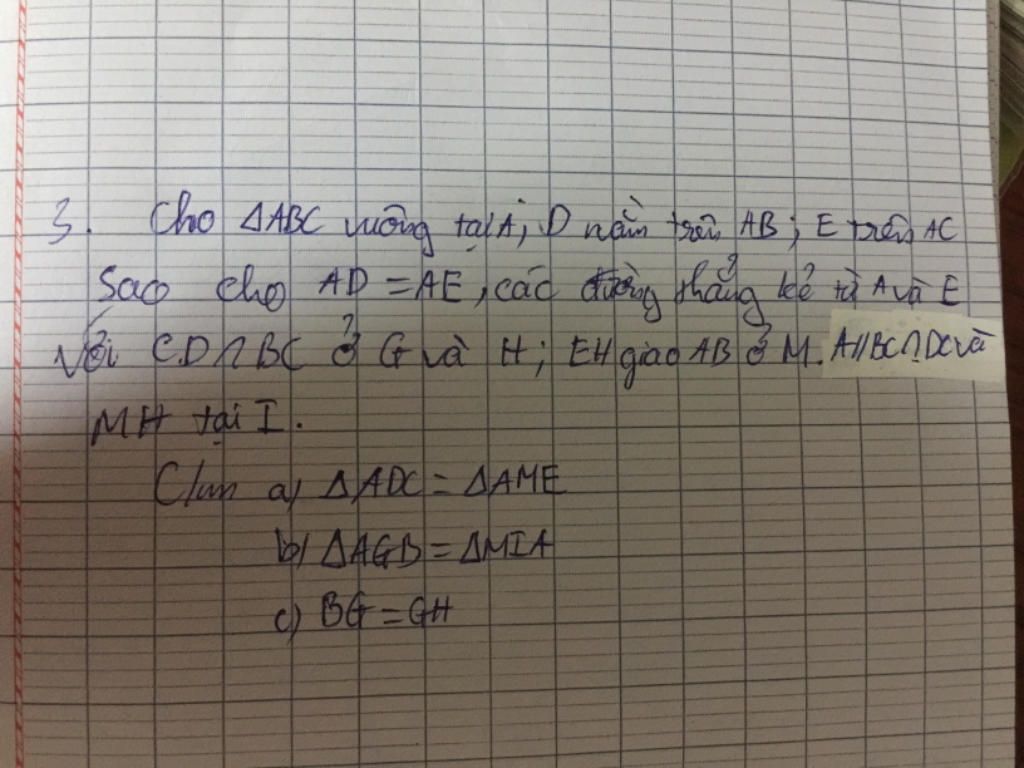 3. Cho ΔABC vuông tại A; D nằm trên AB; E trên AC
Sao cho AD = AE, các đường thẳng kẻ từ A và E
với CD ∩ BC ở G và H; EH giao AB ở M. AI // BC ∩ DC và
MH tại I.
C/m a) ΔADC = ΔAME
b) ΔAGB = ΔMIA
c) BG = GH